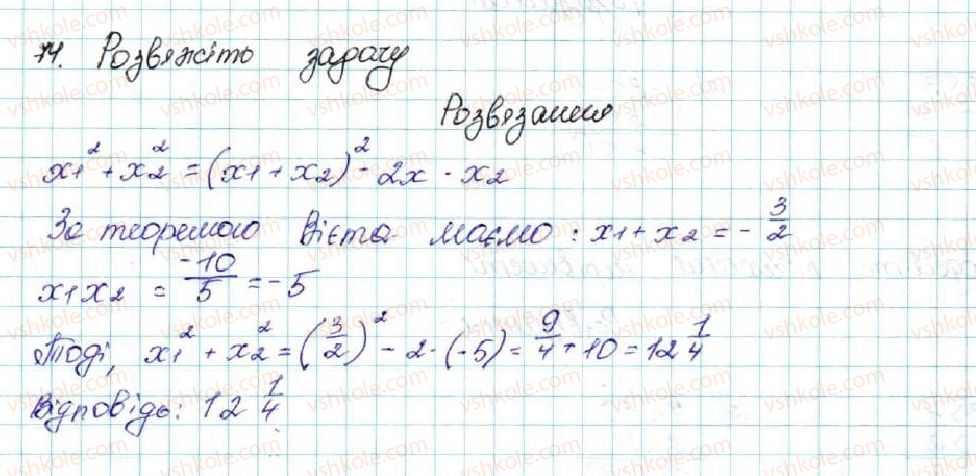 14. Розвяжіть задачу
Розвязання
x1² + x2² = (x1 + x2)² - 2x - x2
За теоремою Вієта маємо: x1 + x2 = - 3/2
x1x2 = -10/5 = -5
Тоді, x1² + x2² = (3/2)² - 2 · (-5) = 9/4 + 10 = 12 1/4
Відповідь: 12 1/4